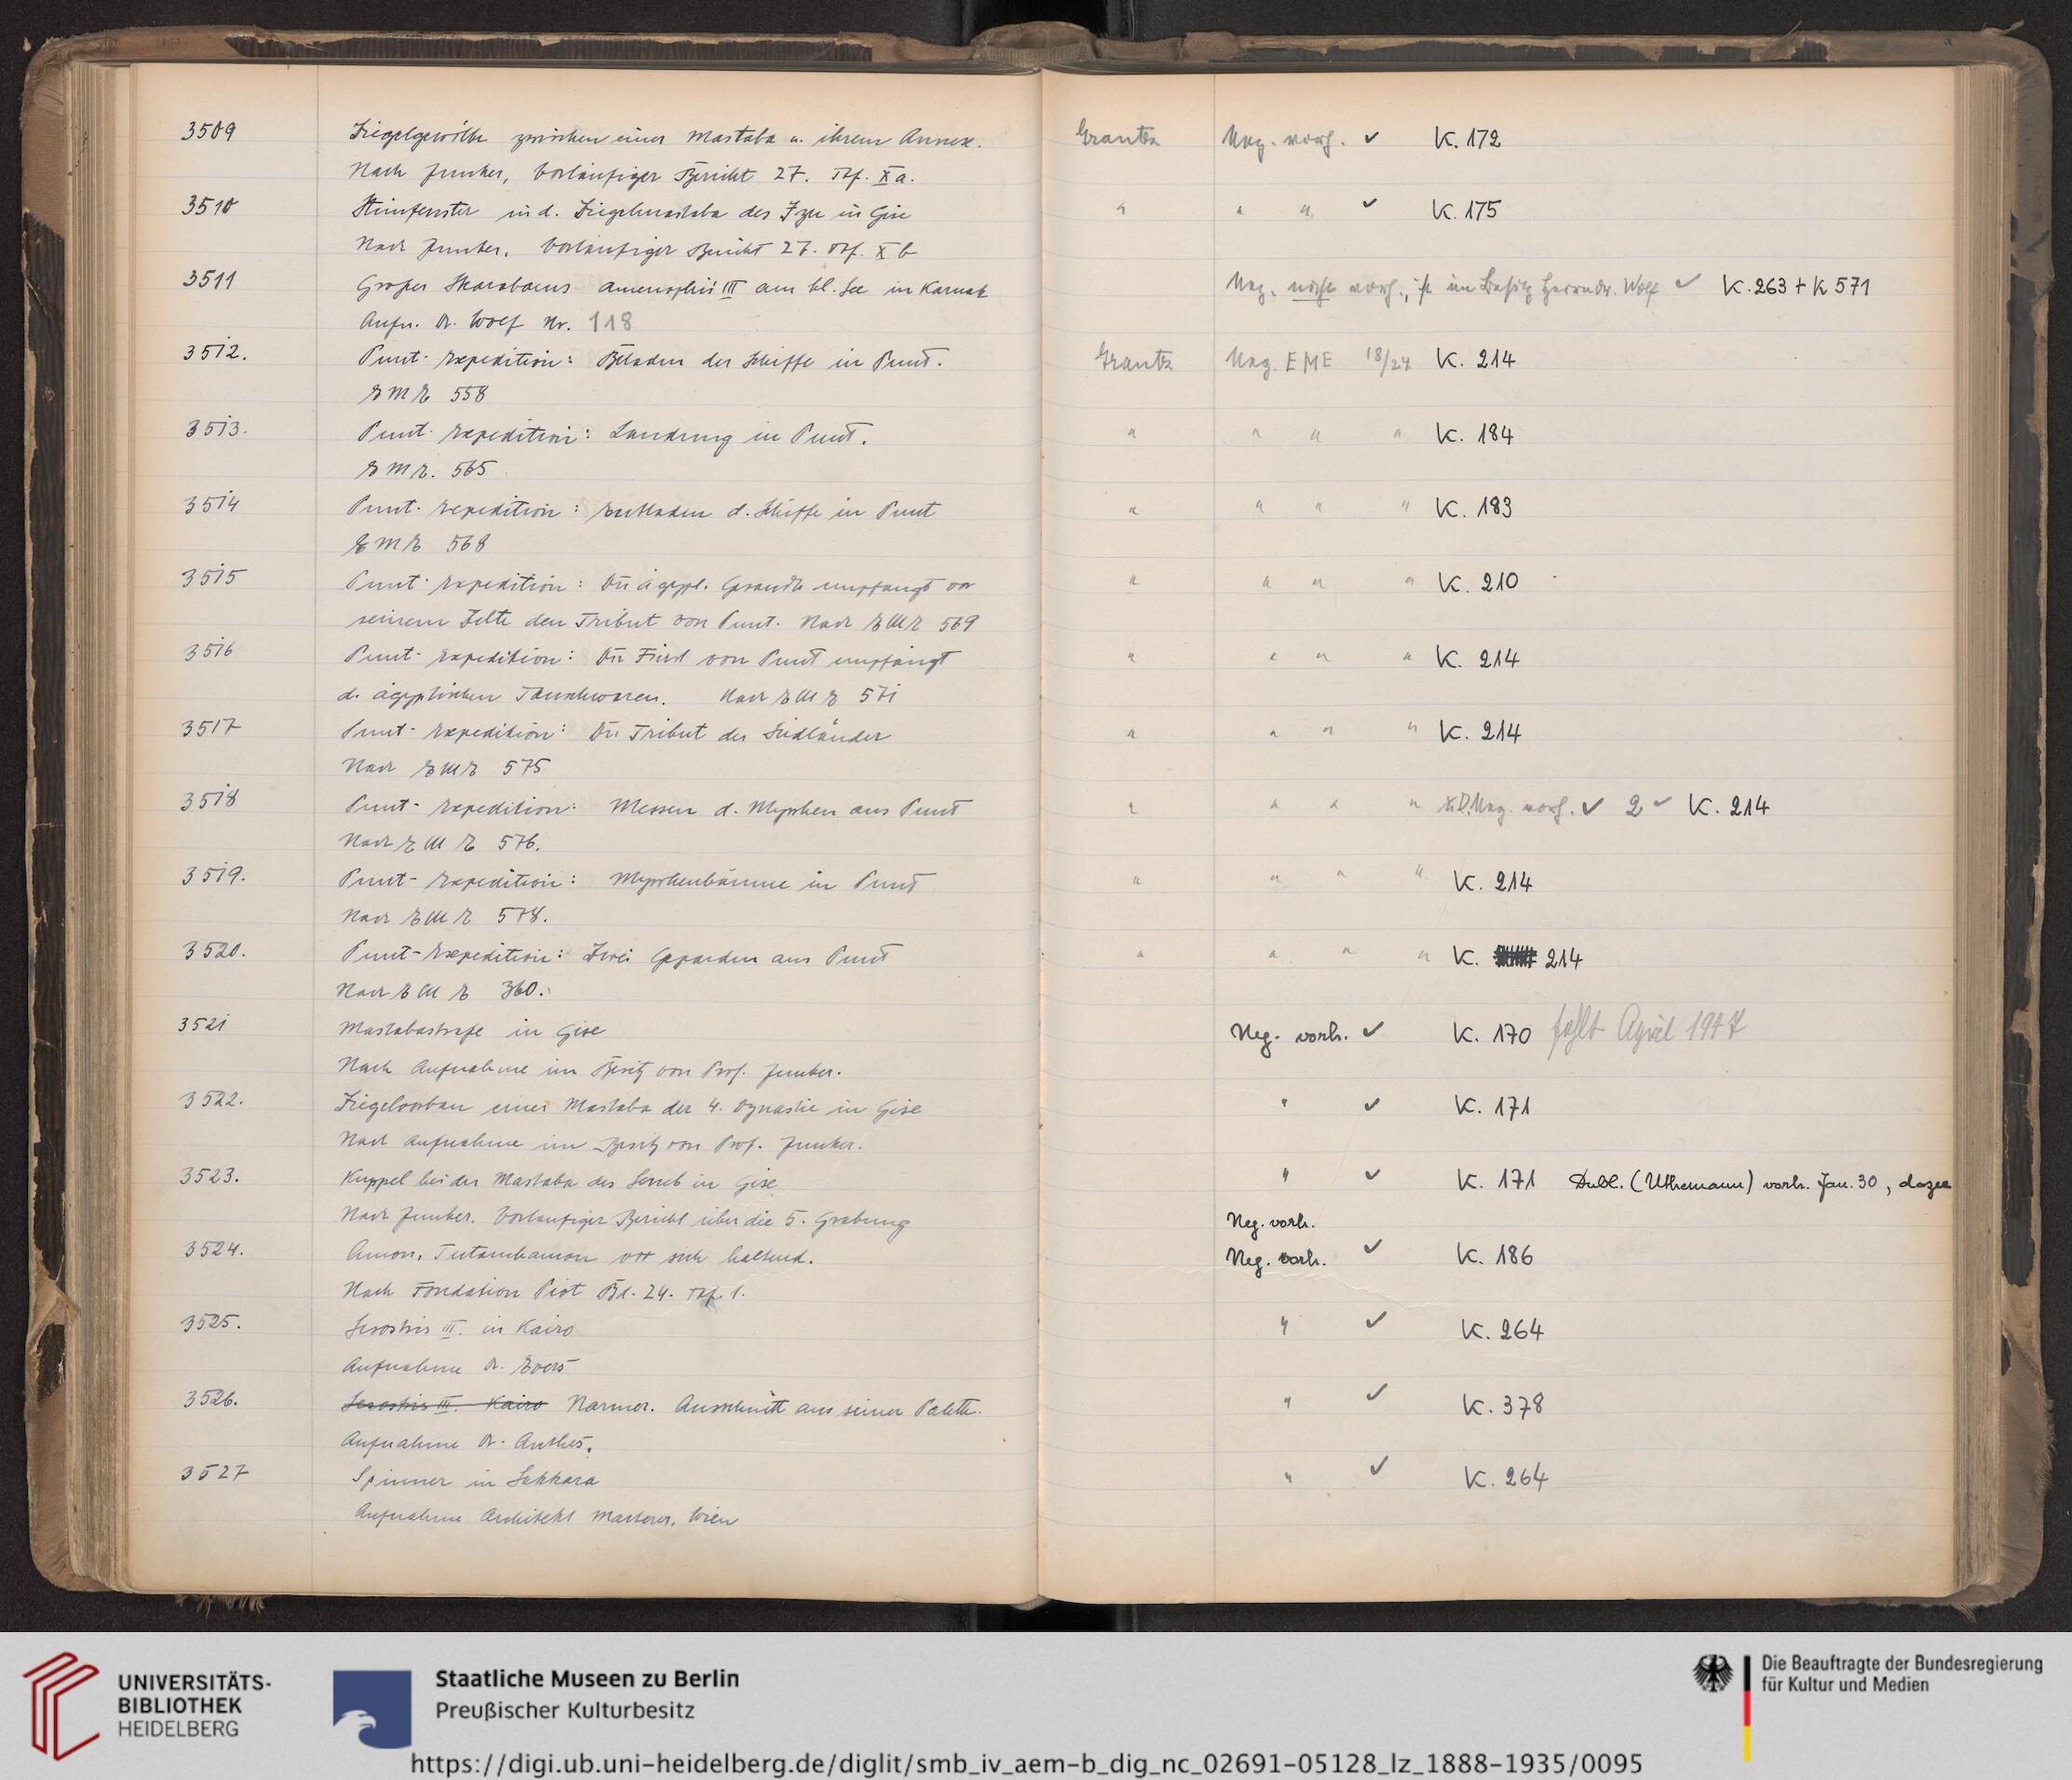 3509 Ziegelgewölbe zwischen einer Mastaba u. ihrem Annex. Grantz Neg. vorh. ✓ K. 172
Nach Junker, Vorläufiger Bericht 27. Tf. X a.
3510 Steinfenster in d. Ziegelmastaba des in Gise " " " ✓ K. 175
Nach Junker. Vorläufiger Bericht 27. Tf. X b
3511 Großer Skarabaeus Amenophis III am hl. See in Karnak Neg. nicht vorh., ist im Besitz Herrn Dr. Wolf ✓ K. 263 + K 571
Aufn. Dr. Wolf Nr. 118
3512. Punt-Expedition: Beladen der Schiffe in Punt. Grantz Neg. EME 18/24 K. 214
EME 558
3513. Punt-Expedition: Landung in Punt. " " " " K. 184
EME. 565
3514 Punt-Expedition: Entladen d. Schiffe in Punt " " " " K. 183
EME 568
3515 Punt-Expedition: Der ägypt. Gesandte empfängt vor " " " " K. 210
seinem Zelte den Tribut von Punt. Nach EME 569
3516 Punt-Expedition: Der Fürst von Punt empfängt " " " " K. 214
d. ägyptischen Tauschwaren. Nach EME 571
3517 Punt-Expedition: Der Tribut der Südländer " " " " K. 214
Nach EME 575
3518 Punt-Expedition: Messen d. Myrrhen aus Punt " " " " Neg. vorh. ✓ 2 ✓ K. 214
Nach EME 576.
3519. Punt-Expedition: Myrrhenbäume in Punt " " " " K. 214
Nach EME 578.
3520. Punt-Expedition: Zwei Geparden aus Punt " " " " K. 214
Nach EME 360.
3521 Mastabastraße in Gise Neg. vorh. ✓ K. 170 fehlt April 1947
Nach Aufnahme im Besitz von Prof. Junker.
3522. Ziegelvorbau einer Mastaba der 4. Dynastie in Gise " ✓ K. 171
Nach Aufnahme im Besitz von Prof. Junker.
3523. Kuppel bei der Mastaba des Seneb in Gise " ✓ K. 171 Dubl. (Uthemann) vorh. Jan. 30, dazu
Nach Junker. Vorläufiger Bericht über die 5. Grabung Neg. vorh.
3524. Amon, Tutanchamon vor sich haltend. Neg. vorh. ✓ K. 186
Nach Fondation Piot Bd. 24. Tf. 1.
3525. Sesostris III. in Kairo " ✓ K. 264
Aufnahme Dr. Evers
3526. Sesostris III. Kairo Narmer. Ausschnitt aus seiner Palette. " ✓ K. 378
Aufnahme Dr. Anthes.
3527 Spinner in Sakkara " ✓ K. 264
Aufnahme Architekt Wien
UNIVERSITÄTS-
BIBLIOTHEK
HEIDELBERG
Staatliche Museen zu Berlin
Preußischer Kulturbesitz
Die Beauftragte der Bundesregierung
für Kultur und Medien
https://digi.ub.uni-heidelberg.de/diglit/smb_iv_aem-b_dig_nc_02691-05128_lz_1888-1935/0095